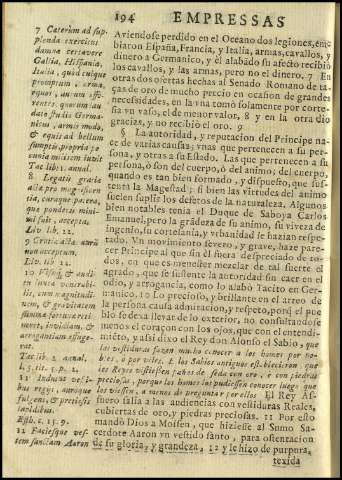 194 EMPRESSAS
7 Cæterum ad sup-
plenda exercitus
damna certavere
Gallia, Hispania,
Italia, quod cuique
promptum, arma,
equos, aurum offe-
rentes. quorum lau
dato studio Germa-
nicus, armis modò,
& equis ad bellum
sumptis, propria pe
cunia militem iuvit
Tac. lib. 1. annal.
8 Legatis gratiæ
actæ pro magnificen
tia, curaque patera,
quæ ponderis mini-
mi fuit, accepta.
Liv. lib. 22.
9 Gratiæ actæ: aurũ
non acceptum.
Liv. lib. 22.
10 Visuq; & audi-
tu iuxta venerabi-
lis, cum magnitudi-
nem, & gravitatem
summæ fortunæ reti-
neret, invidiam, &
arrogantiam effuge-
rat.
Tac. lib. 2. annal.
l. 5. tit. 5. p. 2.
11 Indutus vesti-
bus regijs, auroque
fulgens, & pretiosis
lapidibus.
Esth. c. 15. 9.
12 Faciesque ves-
tem sanctam Aaron
Aviendose perdido en el Oceano dos legiones, em-
biaron España, Francia, y Italia, armas, cavallos, y
dinero a Germanico, y èl alabado su afecto recibiò
los cavallos, y las armas, pero no el dinero. 7 En
otras dos ofertas hechas al Senado Romano de ta-
ças de oro de mucho precio en ocasion de grandes
necessidades, en la vna tomò solamente por corte-
sia vn vaso, el de menor valor, 8 y en la otra diò
gracias, y no recibiò el oro. 9
§ La autoridad, y reputacion del Principe na-
ce de varias causas; vnas que pertenecen a su per-
sona, y otras a su Estado. Las que pertenecen a su
persona, ò son del cuerpo, ò del animo; del cuerpo,
quando es tan bien formado, y dispuesto, que sus-
tenta la Magestad; si bien las virtudes del animo
suelen suplir los defetos de la naturaleza. Algunos
bien notables tenia el Duque de Saboya Carlos
Emanuel, pero la grãdeza de su animo, su viveza de
ingenio, su cortesanìa, y vrbanidad le hazian respe-
tado. Vn movimiento severo, y grave, haze pare-
cer Principe al que sin èl fuera despreciado de to-
dos, en que es menester mezclar de tal suerte el
agrado, que se sustente la autoridad sin caer en el
odio, y arrogancia, como lo alabò Tacito en Ger-
manico. 10 Lo precioso, y brillante en el arreo de
la persona causa admiracion, y respeto, porq̃ el pue
blo se dexa llevar de lo exterior, no consultandose
menos el coraçon con los ojos, que con el entendi-
miẽto, y assi dixo el Rey don Alonso el Sabio, que
las vestiduras fazen mucho conocer a los homes por no-
bles, o por viles. E los Sabios antiguos establecieron que
los Reyes vestiessen paños de seda con oro, e con piedras
preciosas, porque los homes los pudiessen conocer luego que
los viessen, a menos de preguntar por ellos. El Rey As-
suero salia a las audiencias con vestiduras Reales,
cubiertas de oro, y piedras preciosas. 11 Por esto
mandò Dios a Moisen, que hiziesse al Sumo Sa-
cerdote Aaron vn vestido santo, para ostentacion
de su gloria, y grandeza, 12 y le hizo de purpura,
texida